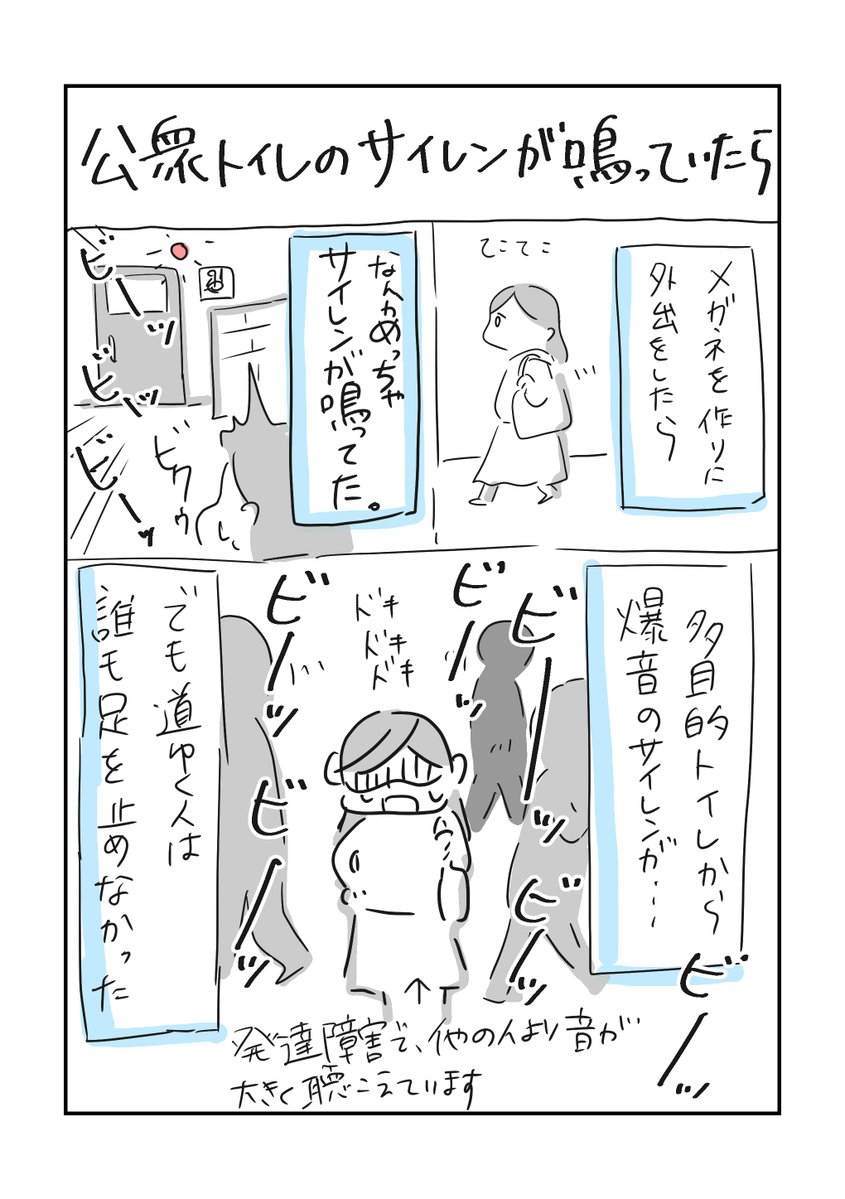 公衆トイレのサイレンが鳴っていたら
メガネを作りに
外出をしたら
てこてこ
なんかめっちゃ
サイレンが鳴ってた。
ビーッ
ビーッ
ビーッ
ビクゥ
多目的トイレから
爆音のサイレンが…
ビーッ
ビーッ
ビーッ
ビーッ
ドキ
ドキ
ドキ
ビーッ
ビーッ
でも道ゆく人は
誰も足を止めなかった
↑
発達障害で、他の人より音が
大きく聴こえています